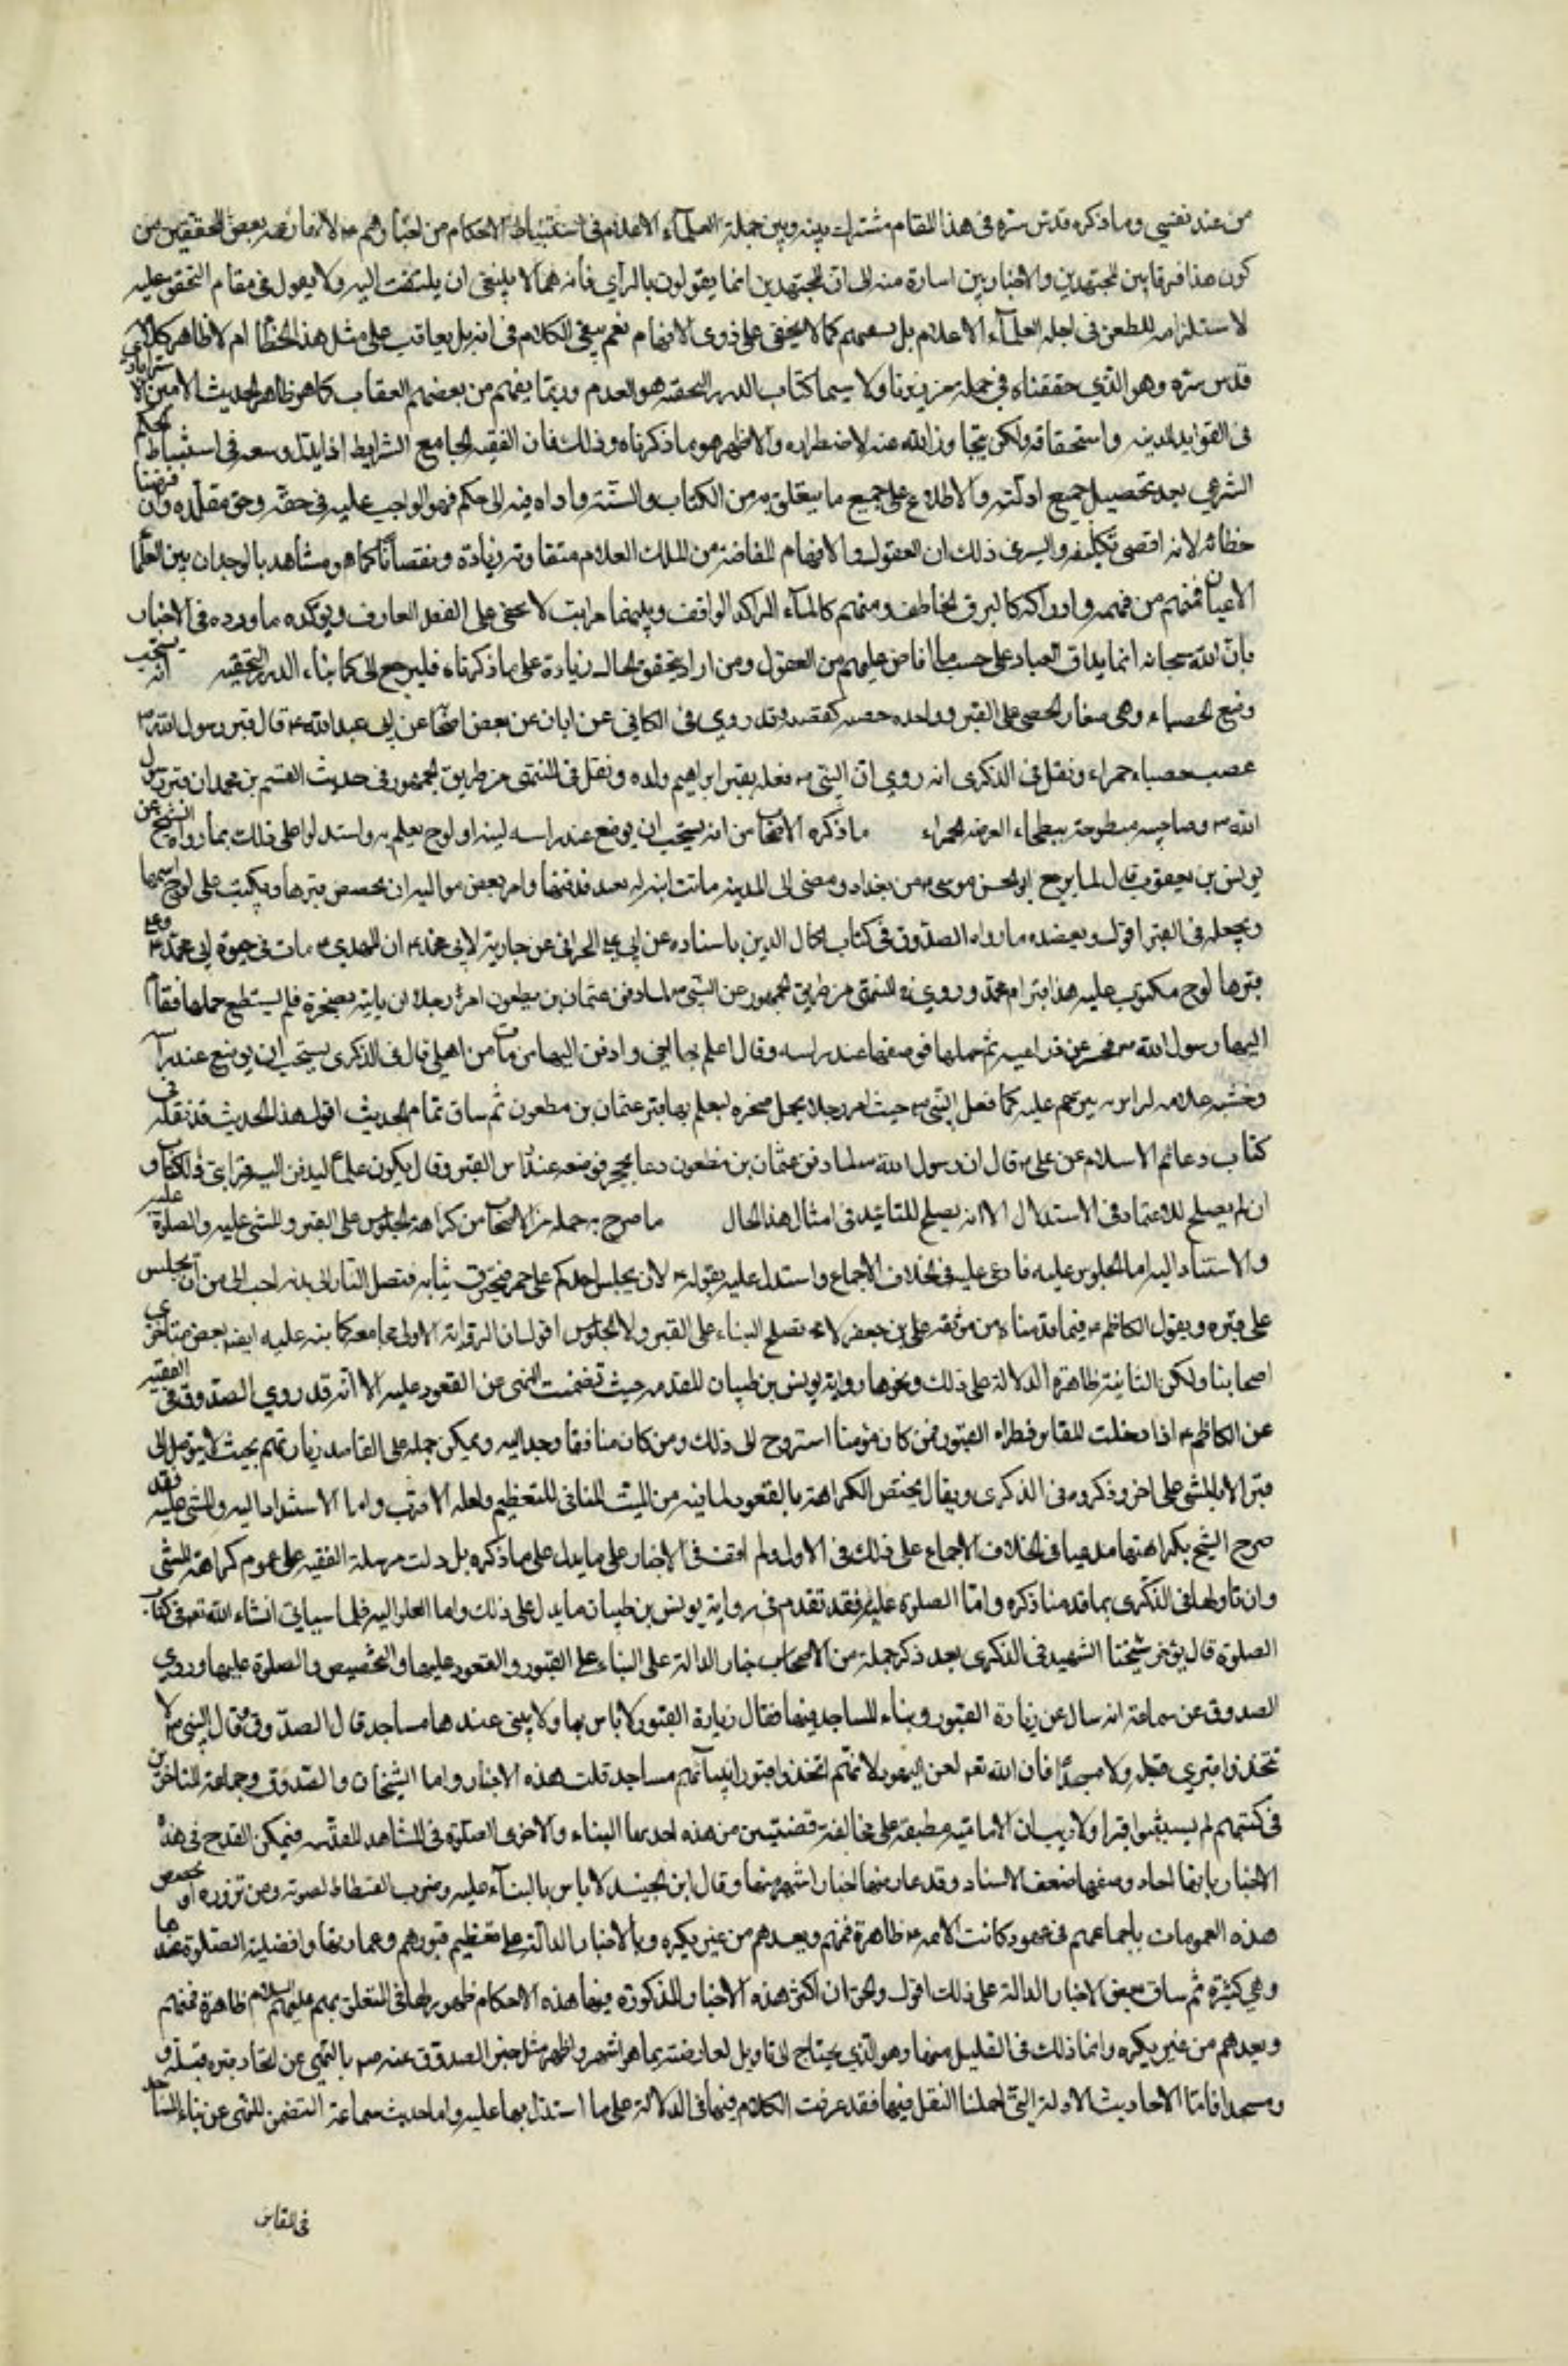 من عند نفسي وما ذكره قدس سره في هذا المقام مشترك بينه وبين جملة العلمآء الاعلام في استنباط الاحكام من اخبارهم ع لا ما زعمه بعض المحققين من
كون هذا فرقا بين المجتهدين والاخباريين اشارة منه الى ان المجتهدين انما يقولون بالرأي فانه مما لا ينبغي ان يلتفت اليه ولا يعول في مقام التحقق عليه
لاستلزامه للطعن في اجله العلمآء الاعلام بل بعضهم كما لا يخفى على ذوي الافهام نعم يبقى الكلام في انه بل يعاقب على مثل هذا الخطأ ام لا ظاهر كلام
قدس سره وهو الذي حققناه في جملة من زبرنا ولا سيما كتاب الدرر النجفيه هو العدم وربما يفهم من بعضهم العقاب كما هو ظاهر المحدث الامين الاسترابادي
في الفوايد المدنيه واستحقاقه ولكن يتجاوز الله عنه لاضطراره والاظهر هو ما ذكرناه وذلك فان الفقيه الجامع الشرايط اذا بذل وسعه في استنباط الحكم
الشرعي بعد تحصيل جميع ادلته والاطلاع على جميع ما يتعلق به من الكتاب والسنة واداه فهمه الى حكم فهو الواجب عليه في حقه وحق مقلده وان فرضنا
خطائه لانه اقصى تكليفه والسر في ذلك ان العقول والافهام المفاضة من الملك العلام متفاوته زيادة ونقصانا كما هو مشاهد بالوجدان بين العلما
الاعيان فمنهم من فهمه وادراكه كالبرق الخاطف ومنهم كالمآء الراكد الواقف وبينهما مراتب لا تخفى على الفطن العارف ويؤكده ما ورد في الاخبار
بان الله سبحانه انما يداق العباد على حسب ما افاض عليهم من العقول ومن اراد تحقيق الحال زيادة على ما ذكرناه فليرجع الى كتابنا الدرر النجفيه انه يستحب
وضع الحصباء وهي صغار الحصى على القبر وواحده حصبه كقصبه وقد روي في الكافي عن ابان عن بعض اصحابه عن ابي عبد الله ع قال قبر رسول الله ص
محصب حصباء حمراء ونقل في الذكرى انه روي ان النبي ص فعله بقبر ابراهيم ولده ونقل في المنتهى من طريق الجمهور في حديث القسم بن محمد ان قبر رسول
الله ص وصاحبيه مبطوحة ببطحاء العرصه الحمراء ما ذكره الاصحاب من انه يستحب ان يوضع عند راسه لبنه او لوح يعلم به واستدلوا على ذلك بما رواه الشيخ عن
يونس بن يعقوب قال لما رجع ابو الحسن موسى ع من بغداد ومضى الى المدينه ماتت ابنه له بفيد فدفنها وامر بعض مواليه ان يجصص قبرها ويكتب على لوح اسمها
ويجعله في القبر اقول ويعضده ما رواه الصدوق في كتاب اكمال الدين باسناده عن ابي علي الخراني عن جارية لابي محمد ع ان ام المهدي ع ماتت في حيوة ابي محمد ع وعلى
قبرها لوح مكتوب عليه هذا قبر ام محمد وروي في المنتهى من طريق الجمهور عن النبي ص لما دفن عثمان بن مظعون امر رجلا ان ياتيه بصخرة فلم يستطع حملها فقام
اليها رسول الله ص فحسر عن ذراعيه ثم حملها فوضعها عند راسه وقال اعلم بها قبر اخي وادفن اليه من مات من اهلي قال في الذكرى يستحب ان يوضع عند راسه
وخشبه علامه ليزار ويترحم عليه كما فعل النبي ص حيث امر رجلا يحمل صخره ليعلم بها قبر عثمان بن مظعون ثم ساق تمام الحديث اقول هذا الحديث قد نقله في
كتاب دعائم الاسلام عن علي ع قال ان رسول الله ص لما دفن عثمان بن مظعون دعا بحجر فوضعه عند راس القبر وقال يكون علما ليدفن اليه قرابتي والكتاب و
ان لم يصلح للاعتماد في الاستدلال الا انه يصلح للتائيد في امثال هذا الحال ما صرح به جملة من الاصحاب من كراهة الجلوس على القبر والمشي عليه والصلوة عليه
والاستناد اليه اما الجلوس عليه فادعى عليه في الخلاف الاجماع واستدل عليه بقوله ص لان يجلس احدكم على جمر فتحرق ثيابه فتصل النار الى بدنه احب الي من ان يجلس
على قبره وبقول الكاظم ع فيما قدمناه من موثقه علي بن جعفر لا يصلح البناء على القبر ولا الجلوس اقول ان الرواية الاولى عاميه كما نبه عليه ايضا بعض متاخري
اصحابنا ولكن الثانية ظاهرة الدلالة على ذلك ونحوها رواية يونس بن ظبيان المتقدمه حيث تضمنت النهي عن القعود عليه الا انه قد روي الصدوق في الفقيه
عن الكاظم ع اذا دخلت المقابر فطأ القبور فمن كان مؤمنا استروح الى ذلك ومن كان منافقا وجد المه ويمكن حمله على القاصد زيارتهم بحيث لا يتوصل الى
قبر الا بالمشي على اخر وذكره في الذكرى ويقال يختص الكراهة بالقعود لما فيه من اللبث المنافي للتعظيم ولعله الاقرب واما الاستناد اليه والمشي عليه فقد
صرح الشيخ بكراهتهما مدعيا في الخلاف الاجماع على ذلك في الاول ولم اقف في الاخبار على ما يدل على ما ذكره بل دلت مرسلة الفقيه على عدم كراهة المشي
وان تاولها في الذكرى بما قدمنا ذكره واما الصلوة عليه فقد تقدم في رواية يونس بن ظبيان ما يدل على ذلك واما الصلوة اليه فلما سياتي انشاء الله تعالى في كتاب
الصلوة قال شيخنا الشهيد في الذكرى بعد ذكر جملة من الاخبار الدالة على البناء على القبور والقعود عليها والتجصيص والصلوة عليها وروي
الصدوق عن سماعة انه سال عن زيارة القبور وبناء المساجد فيها فقال زيارة القبور لا باس بها ولا يبنى عندها مساجد قال الصدوق وقال النبي ص لا
تتخذوا قبري قبلة ولا مسجدا فان الله تعالى لعن اليهود لانهم اتخذوا قبور انبيآئهم مساجد قلت هذه الاخبار رواها الشيخان والصدوق وجماعة المتاخرين
في كتبهم ولم يستثنوا قبرا ولا ريب ان الاماميه مطبقة على مخالفة قضيتين من هذه احديهما البناء والاخرى الصلوة في المشاهد المقدسه فيمكن القدح في هذه
الاخبار بانها احاد وبعضها ضعيف الاسناد وقد عارضها اخبار اشهر منها وقال ابن الجنيد لا باس بالبنآء عليه وضرب الفسطاط لصونه ومن يزوره او تخصيص
هذه العمومات باجماعهم في عهود كانت الائمه ع ظاهرة فيهم وبعدهم من غير نكير وبالاخبار الدالة على تعظيم قبورهم وعمارتها وافضلية الصلوة عندها
وهي كثيرة ثم ساق بعض الاخبار الدالة على ذلك اقول والحق ان اكثر هذه الاخبار المذكورة فيها هذه الاحكام لا ظهور لها في التعلق بهم عليهم السلام
وبعدهم من غير نكير وانما ذلك في القليل منها وهو الذي يحتاج الى تاويل لمعارضته بما هو اشهر واظهر مثل خبر الصدوق عنه ص بالنهي عن اتخاذ قبره قبلة و
ومسجدا فاما الاحاديث الاولة التي اجملنا النقل فيها فقد عرفت الكلام فيها في الدلالة على ما استدل بها عليه واما حديث سماعة المتضمن للنهي عن بناء المساجد
في المقابر